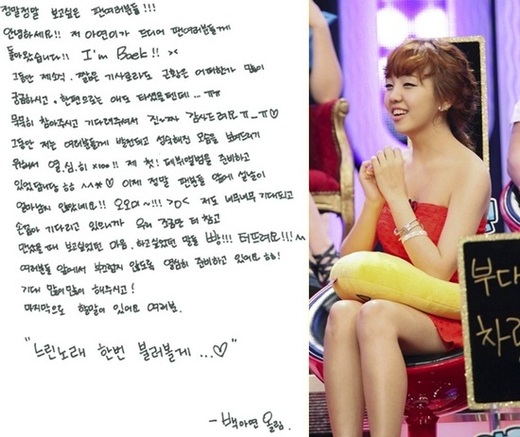 정말정말 보고싶은 팬여러분들!!!
안녕하세요!! 저 아연이가 드디어 팬여러분들께
돌아왔습니다!! I'm Baek!! ><
그동안 제소식, 짧은 기사들라도 근황은 어떠한가 많이
궁금하시고, 한편으로는 애도 타셨을텐데... ㅠㅠ
묵묵히 참아주시고 기다려주셔서 진~짜 감사드려요 ㅠ_ㅠ♡
그동안 저는 여러분들께 발전되고 성숙해진 모습을 보여드리기
위해서 열.심.히 x100!! 제 첫! 데뷔앨범을 준비하고
있었답니당 ㅎㅎ ^^* 이제 정말 팬분들 앞에 설날이
얼마남지 않았네요!! 오오예~!!! >0< 저도 너무너무 기대되고
손꼽아 기다리고 있으니까 우리 조금만 더 참고
만났을때 보고싶었던 마음, 하고싶었던 말들 빵!!! 터뜨려요!!!~
여러분들 앞에서 부끄럽지 않도록 열심히 준비하고 있어요 ㅎㅎ!
기대 많이많이 해주시고!
마지막으로 할말이 있어요 여러분.
"느린노래 한번 불러볼게...♡"
- 백아연 올림.
부대
차